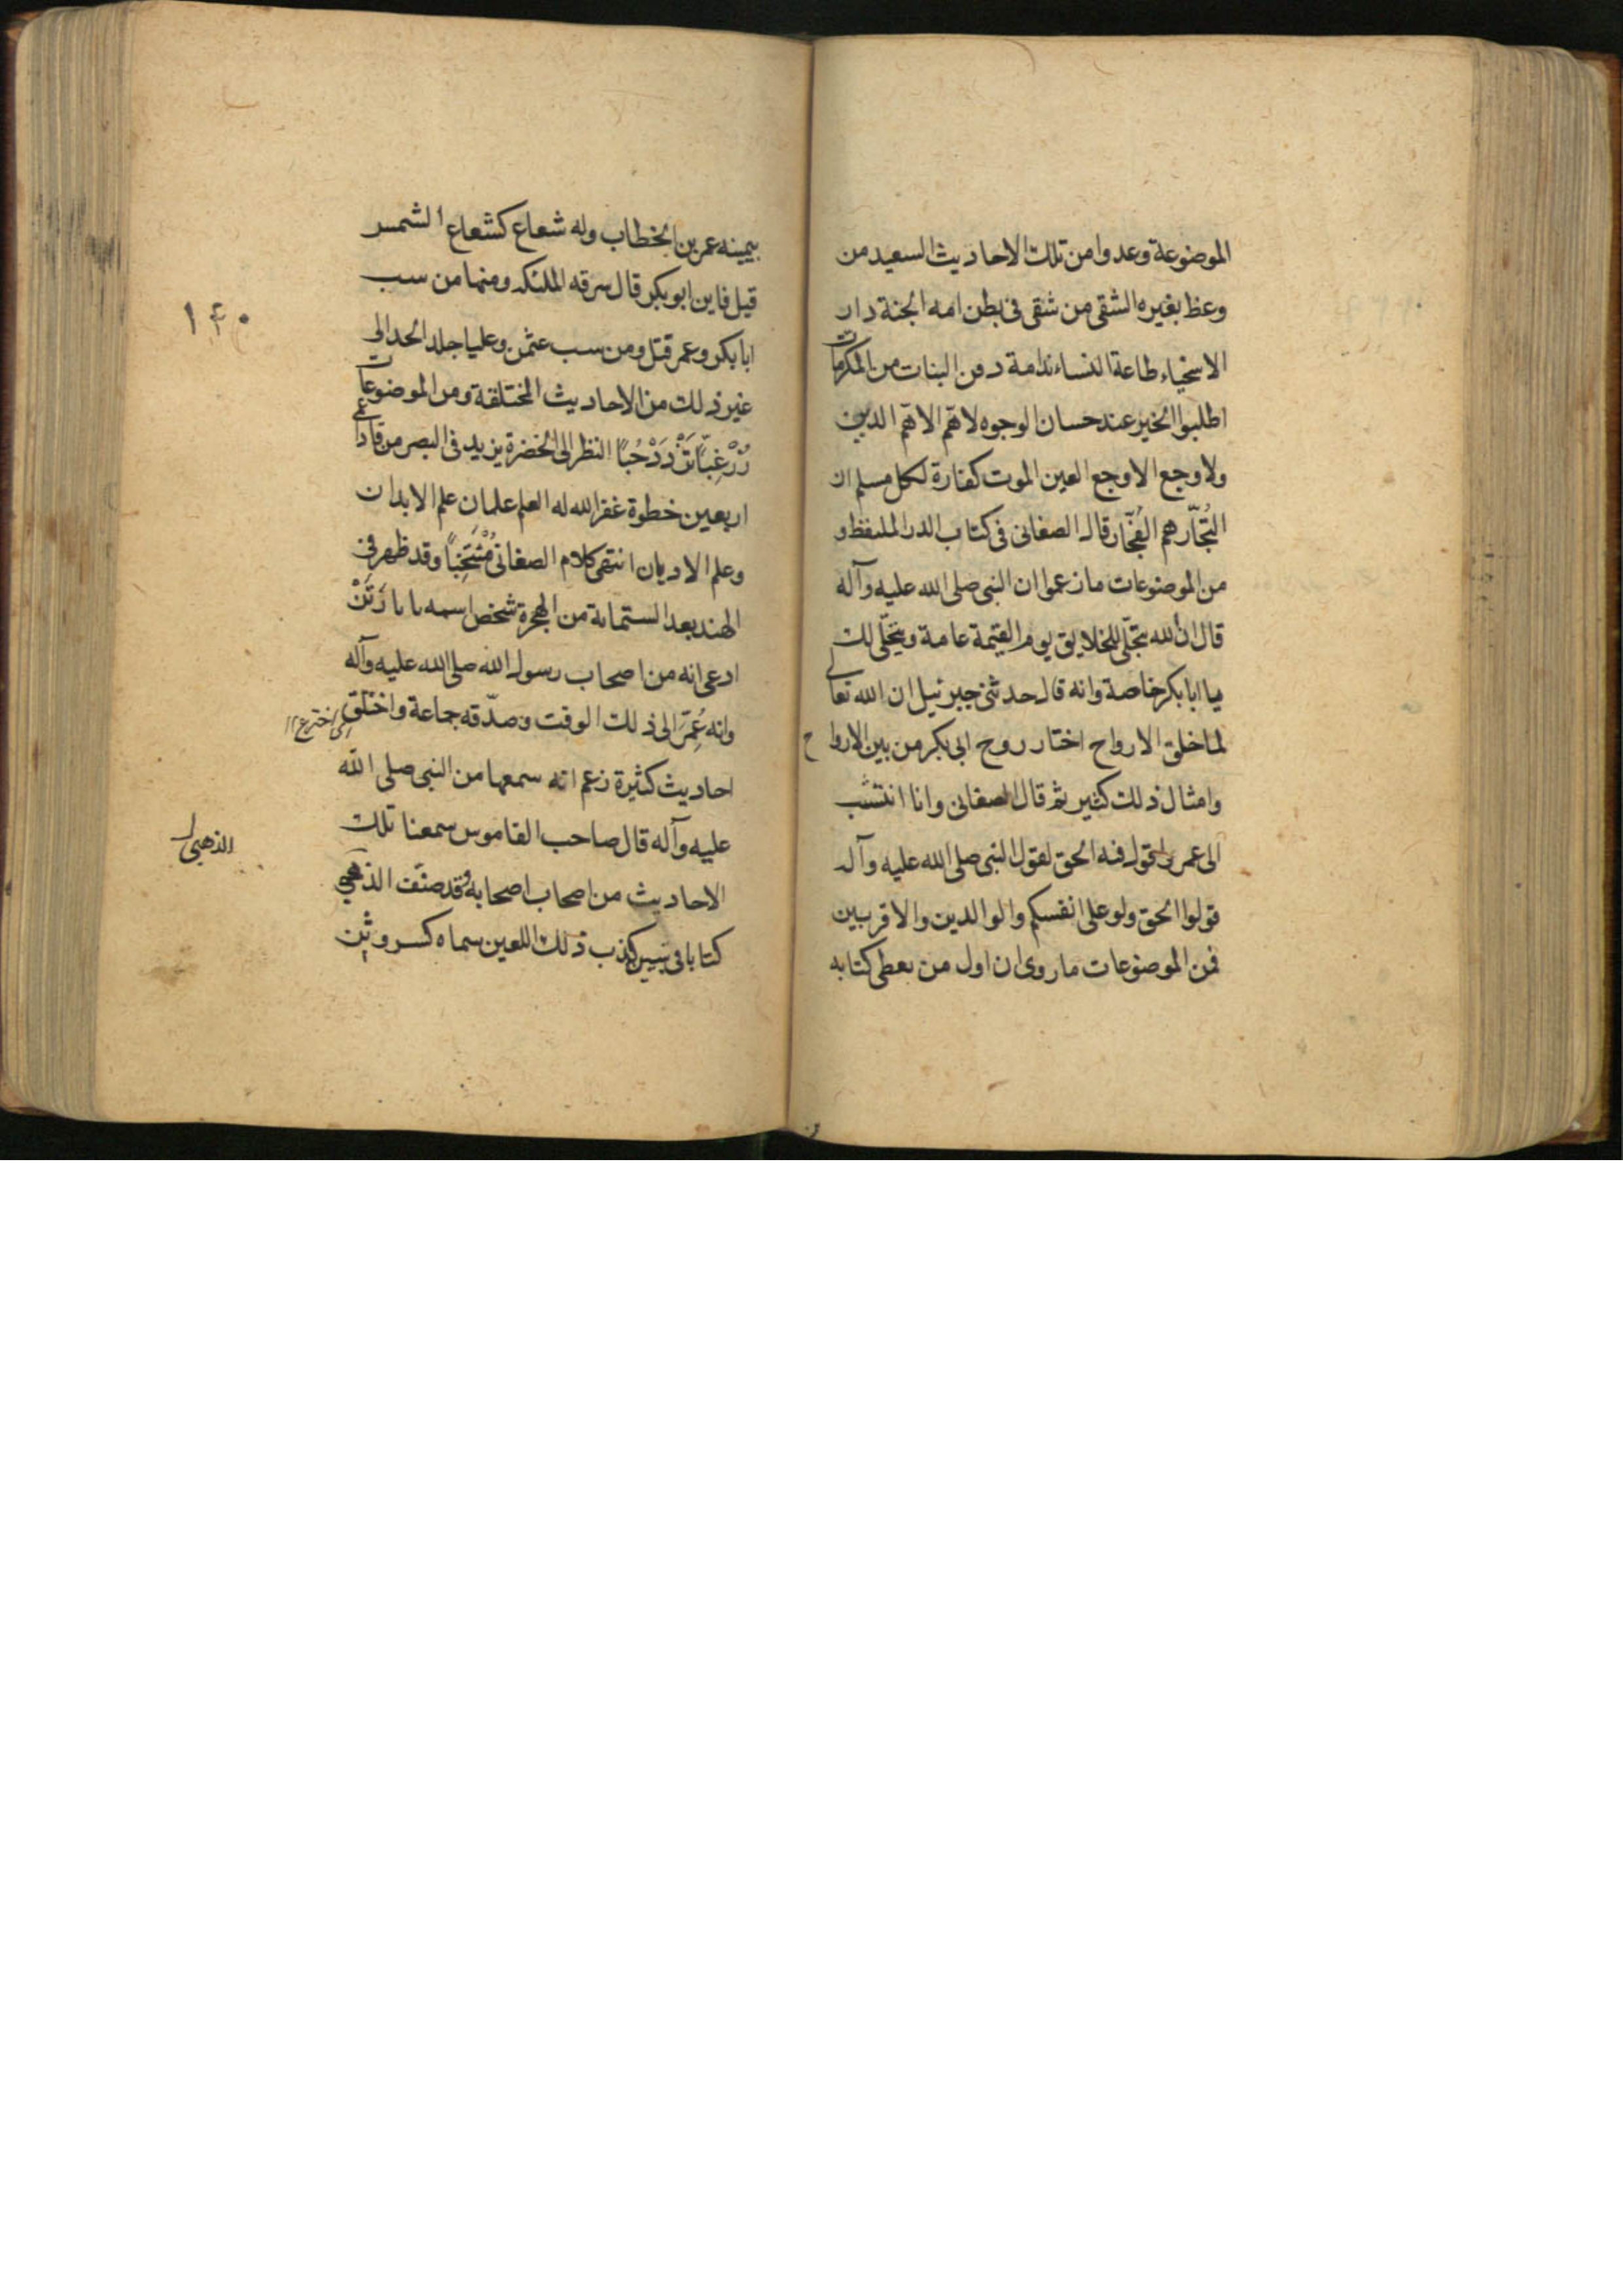 الموضوعة وعدوا من تلك الاحاديث السعيد من
وعظ بغيره الشقى من شقى فى بطن امه الجنة دار
الاسخياء طاعة النساء ندامة دفن البنات من المكرمات
اطلبوا الخير عند حسان الوجوه لا همّ الا همّ الدين
ولا وجع الا وجع العين الموت كفارة لكل مسلم ان
التُجّار هم الفُجّار قال الصغانى فى كتاب الدر الملتقط و
من الموضوعات ما زعموا ان النبى صلى الله عليه وآله
قال ان الله يتجلّى للخلايق يوم القيمة عامة ويتجلّى لك
يا ابا بكر خاصة وانه قال حدثنى جبرئيل ان الله تعالى
لما خلق الارواح اختار روح ابى بكر من بين الارواح
وامثال ذلك كثير ثم قال الصغانى وانا انتسب
الى عمر واقول فيه الحق لقول النبى صلى الله عليه وآله
قولوا الحق ولو على انفسكم والوالدين والاقربين
فمن الموضوعات ما روى ان اول من يعطى كتابه
بيمينه عمر بن الخطاب وله شعاع كشعاع الشمس
قيل فاين ابو بكر قال سرقه الملئكة ومنها من سب
ابا بكر وعمر قتل ومن سب عثمن وعليا جلد الحد الى
غير ذلك من الاحاديث المختلقة ومن الموضوعات
زُرْ غِبّاً تَزْدَدْ حُبّاً النظر الى الخضرة يزيد فى البصر من قاد اعمى
اربعين خطوة غفر الله له العلم علمان علم الابدان
وعلم الاديان انتهى كلام الصغانى مُنْتَخَباً وقد ظهر فى
الهند بعد الستمائة من الهجرة شخص اسمه بابا رَتَنْ
ادعى انه من اصحاب رسول الله صلى الله عليه وآله
وانه عُمِّرَ الى ذلك الوقت وصدّقه جماعة واختلق
احاديث كثيرة زعم انه سمعها من النبى صلى الله
عليه وآله قال صاحب القاموس سمعنا تلك
الاحاديث من اصحاب اصحابه وقد صنّف الذهبى
كتابا فى تبيين كذب ذلك اللعين سماه كسر وثن
۱۴۰
اى اخترع
الذهبى